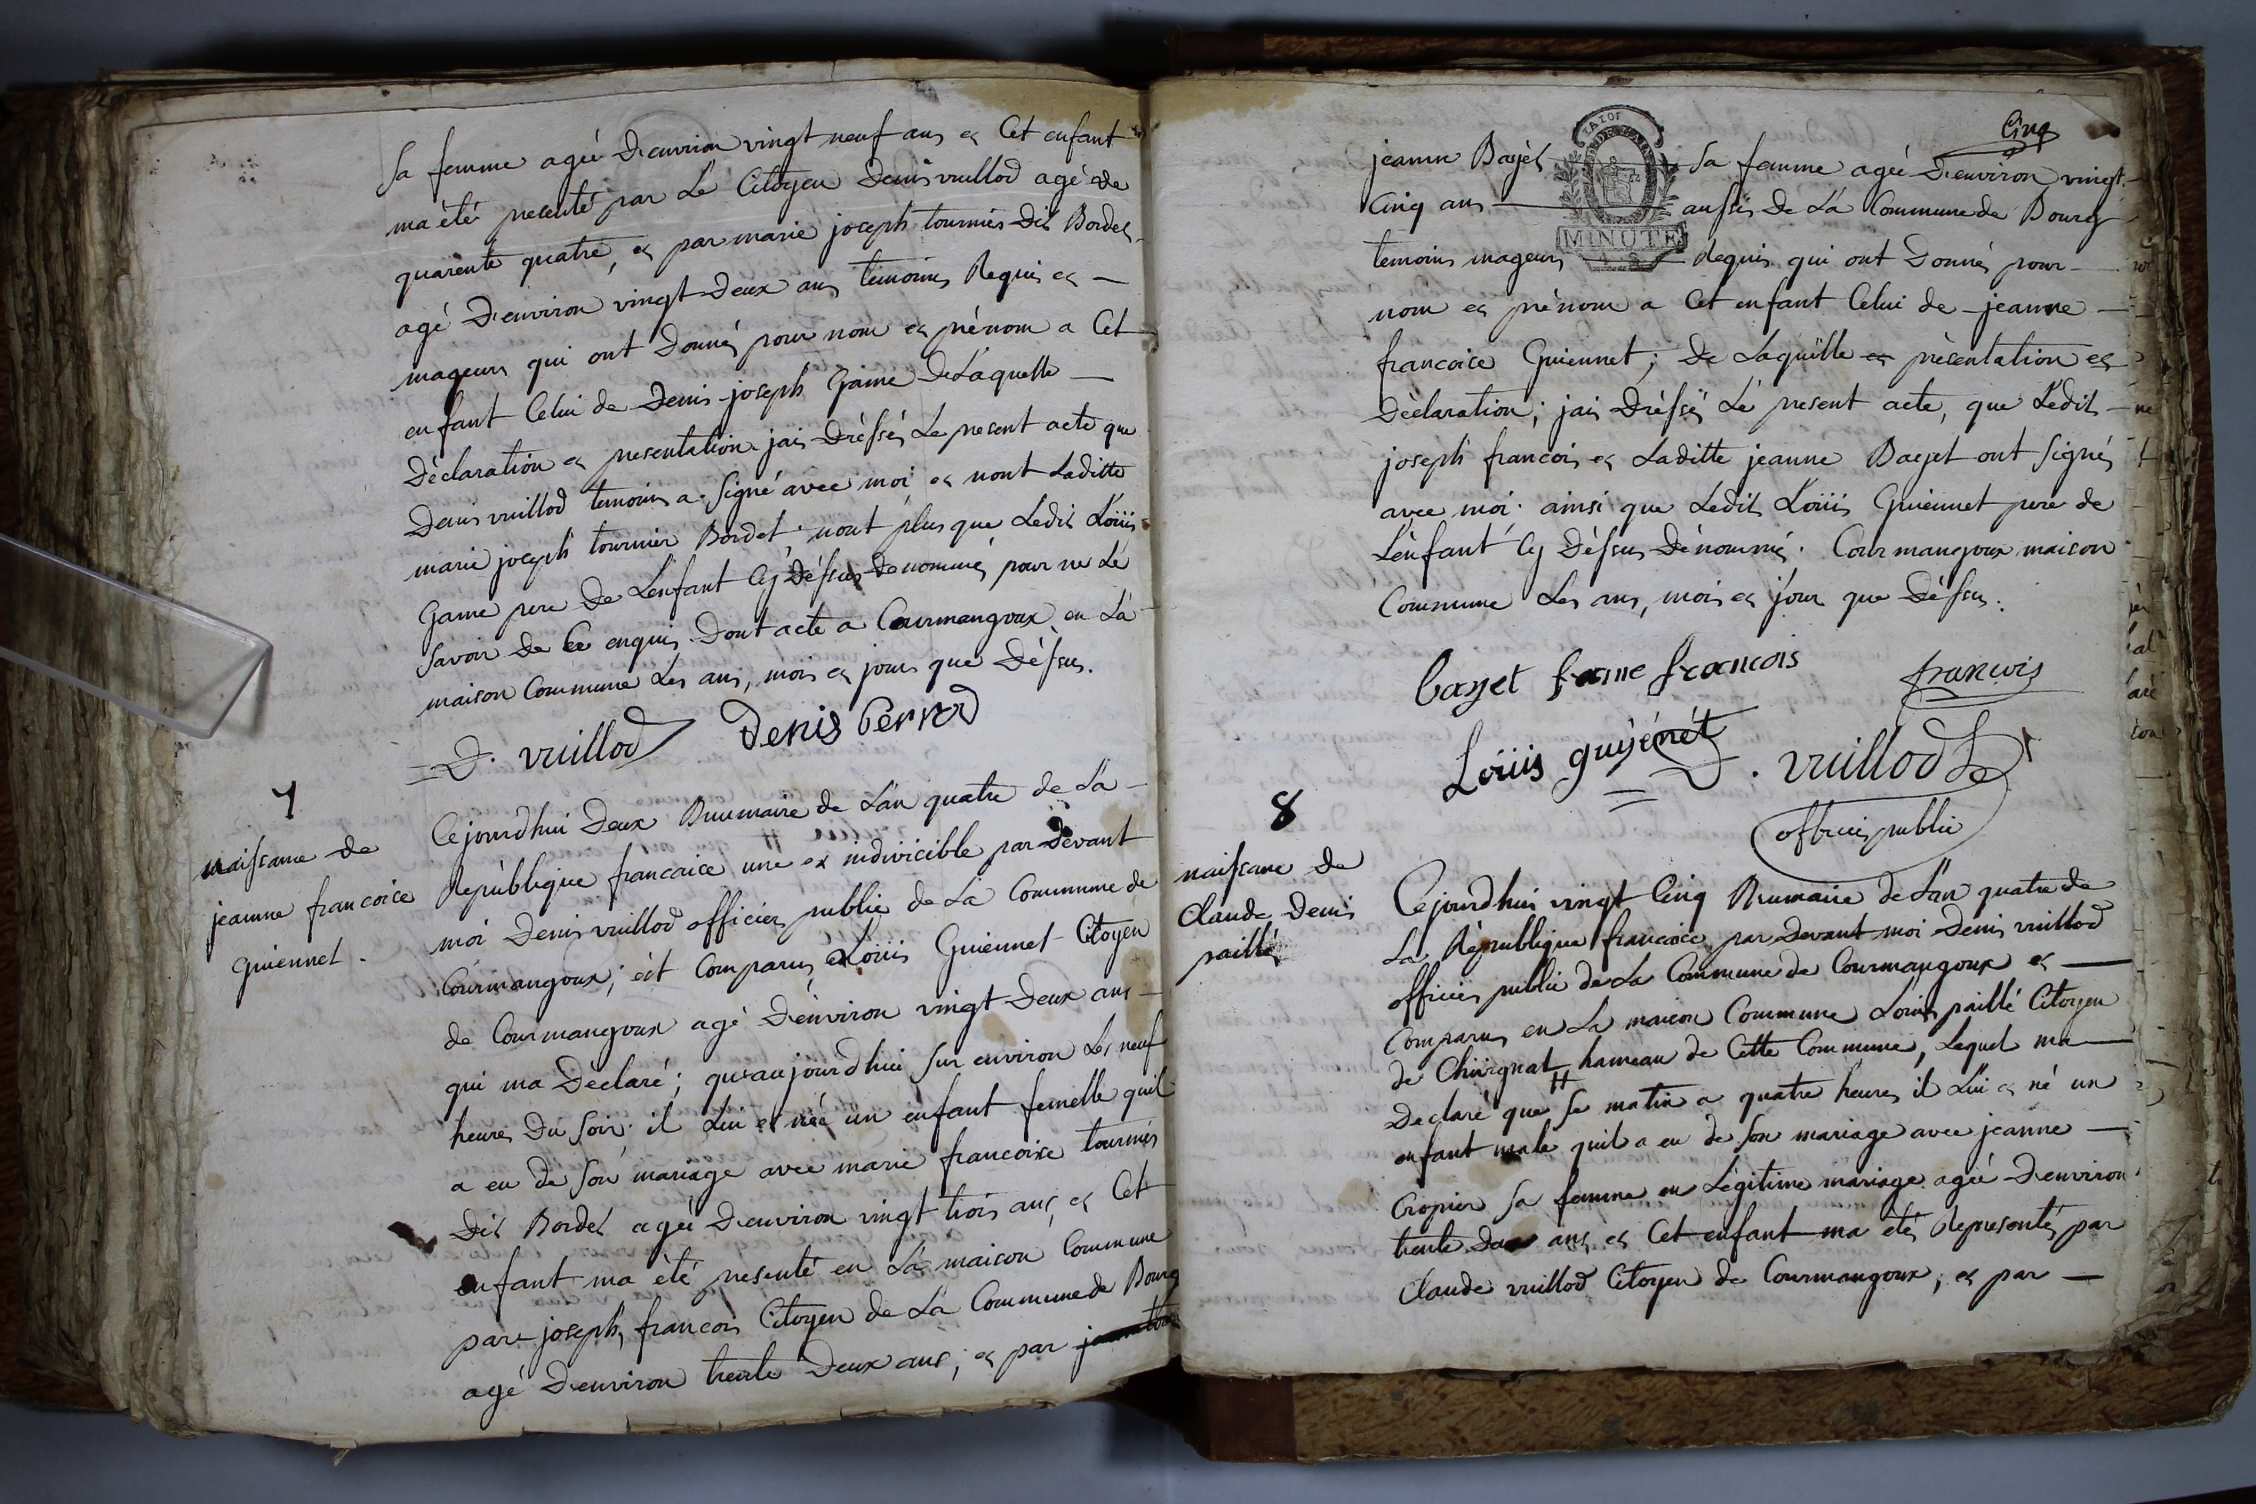 Sa femme agée D'environ vingt neuf ans et Cet enfant
ma été presenté par Le Citoyen Denis vuillod agé de
quarente quatre, et par marie joseph tournier Dit Bordet
agé D'environ vingt Deux ans temoins Requis et
mageurs qui ont Donnés pour nom et prénom a Cet
enfant Celui de Denis joseph Game De Laquelle
Déclaration et presentation jai Dréssés Le present acte que
Denis vuillod temoins a Signé avec moi et nont Laditte
marie joseph tournier Bordet nont plus que Ledit Loüis
Game pere de L'enfant Cy Déssus denommés pour ne Lé
Savoir de Ce enquis Dont acte a Courmangoux en La
maison Commune Les ans, mois et jours que Déssus.
D. vuillod Denis Perrod
7
naissance de
jeanne francoice
Guiennet.
Cejourdhui Deux Brumaire de L'an quatre de La
République francaice une et indivicible par Devant
moi Denis vuillod officier public de La Commune de
Courmangoux; éct Comparus Loüis Guiennet Citoyen
de Courmangoux agé D'environ vingt Deux ans
qui ma Déclaré; qu'aujourdhui Sur environ Les neuf
heures Du Soir il Lui et née un enfant femelle quil
a eu de Son mariage avec marie francoise tournier
Dit Bordet agée D'environ vingt trois ans, et Cet
enfant ma été presenté en La maison Commune
par joseph francois Citoyen de La Commune de Bourg
agé D'environ trente Deux ans; et par
Cinq
MINUTE
jeanne Bayet Sa femme agée D'environ vingt
Cinq ans aussis de La Commune de Bourg
temoins mageurs Requis qui ont Donnés pour
nom et prénom a Cet enfant Celui de jeanne
francoice Guiennet; De Laquëlle et présentation et
Déclaration; jai Dréssés Le present acte, que Ledit
joseph francois et Laditte jeanne Bayet ont Signés
avec moi ainsi que Ledit Loüis Guiennet pere de
L'énfant Cy Déssus Dénommé. Courmangoux maison
Commune Les ans, mois et jour que Déssus.
bayet fame francois francois
Loüis guyénét D. vuillod
officier public
8
naissance de
Claude Denis
paillé
Cejourdhui vingt Cinq Brumaire de L'an quatre de
La République francaice par devant moi Denis vuillod
officier public de La Commune de Courmangoux et
Comparus en La maison Commune Louis paillé Citoyen
de Chivignat hameau de Cette Commune, Lequel ma
Declaré que Se matin a quatre heures il Lui et né un
enfant male quil a eu de Son mariage avec jeanne
Cropier Sa femme en Légitime mariage agée D'environ
trente ans et Cet enfant ma été Representés par
Claude vuillod Citoyen de Courmangoux, et par